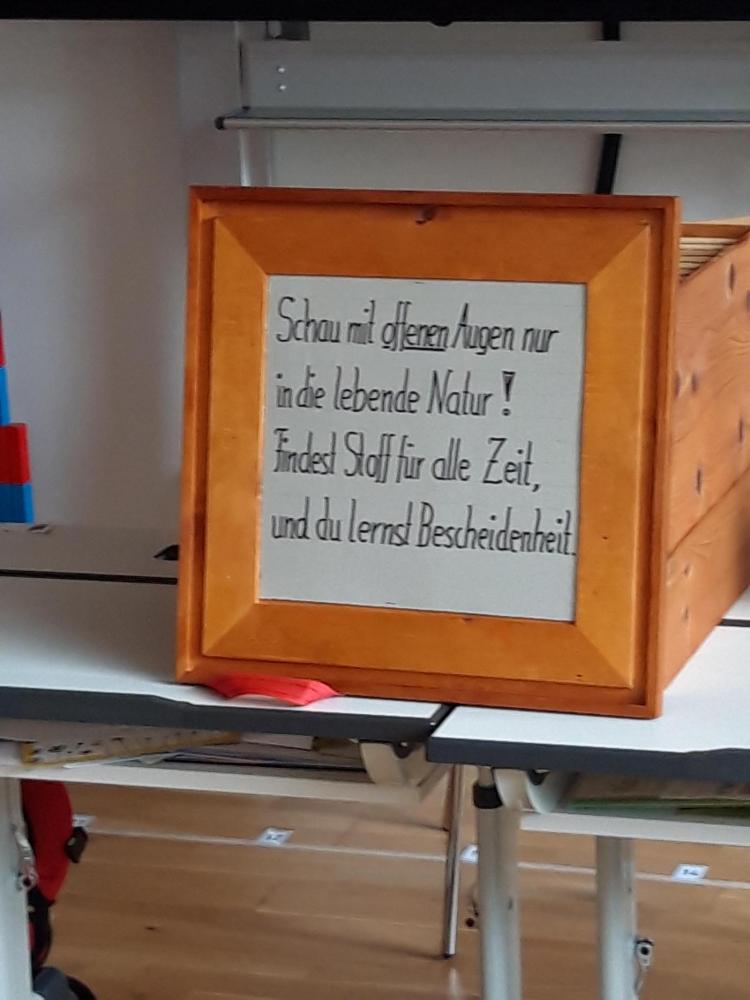 Schau mit offenen Augen nur
in die lebende Natur!
Findest Stoff für alle Zeit,
und du lernst Bescheidenheit.